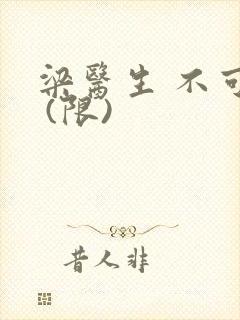 梁醫生 不可
(限)
昔人非